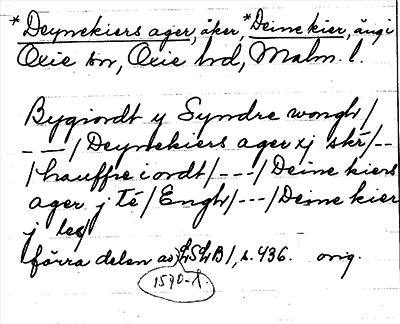 *Deynekiers ager, åker, *Deine kier, äng i
Oxie sn, Oxie hd, Malm. l.
Bygiordt y Syndre wongh/
---/Deynekiers ager xj skr/--
/hauffre iordt/---/Deine kiers
ager j té/Engh/---/Deine kier
j les/
förra delen av B1, s. 436. orig.
1570-t.